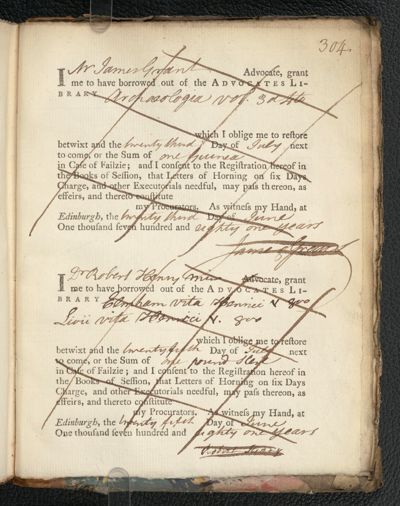 304.
I Mr James Grant Advocate, grant
me to have borrowed out of the ADVOCATES LI-
BRARY Archaeologia vol. 3d 4to
which I oblige me to reſtore
betwixt and the twenty third Day of July next
to come, or the Sum of one Guinea
in Caſe of Failzie; and I conſent to the Regiſtration hereof in
the Books of Seſſion, that Letters of Horning on ſix Days
Charge, and other Executorials needful, may paſs thereon, as
effeirs, and thereto conſtitute
my Procurators. As witneſs my Hand, at
Edinburgh, the twenty third Day of June
One thouſand ſeven hundred and eighty one years
James Grant
I Dr Robert Henry Advocate, grant
me to have borrowed out of the ADVOCATES LI-
BRARY Elmham vita Henrici V 8vo
Livii vita Henrici V. 8vo
which I oblige me to reſtore
betwixt and the twenty fifth Day of July next
to come, or the Sum of one pound Ster
in Caſe of Failzie; and I conſent to the Regiſtration hereof in
the Books of Seſſion, that Letters of Horning on ſix Days
Charge, and other Executorials needful, may paſs thereon, as
effeirs, and thereto conſtitute
my Procurators. As witneſs my Hand, at
Edinburgh, the twenty fifth Day of June
One thouſand ſeven hundred and eighty one years